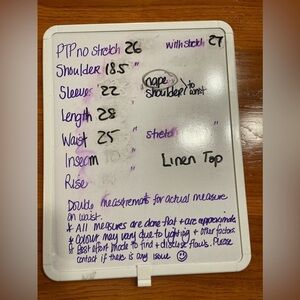 PTP no stretch 26 with stretch 27
Shoulder 18.5 "
Sleeves 22 " nape shoulder } to wrist
Length 28 "
Waist 25 " stretch "
Inseam " Linen Top
Rise "
Double measurements for actual measure
on waist.
* All measures are done flat + are approximate
* Colour may vary due to lighting + other factors
* Best effort made to find + disclose flaws. Please
contact if there is any issue ☺